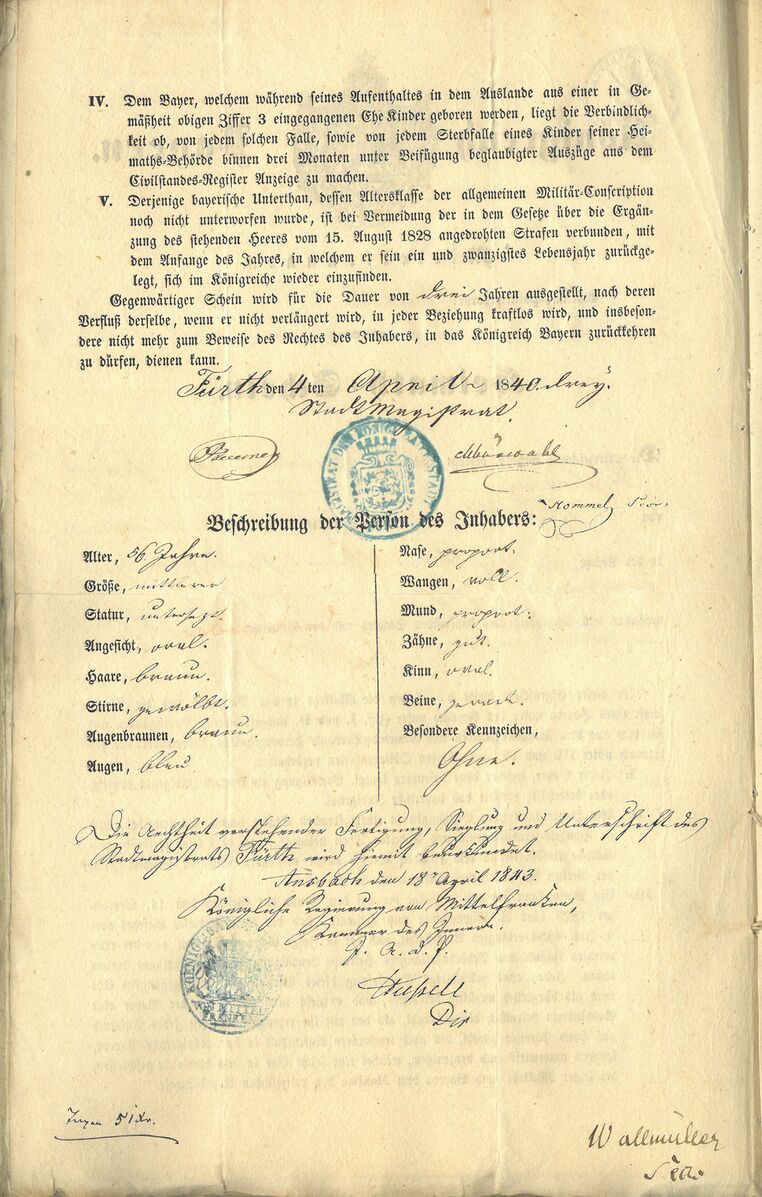 IV. Dem Bayer, welchem während seines Aufenthaltes in dem Auslande aus einer in Ge-
mäßheit obigen Ziffer 3 eingegangenen Ehe Kinder geboren werden, liegt die Verbindlich-
keit ob, von jedem solchen Falle, sowie von jedem Sterbfalle eines Kinder seiner Hei-
maths-Behörde binnen drei Monaten unter Beifügung beglaubigter Auszüge aus dem
Civilstandes-Register Anzeige zu machen.
V. Derjenige bayerische Unterthan, dessen Altersklasse der allgemeinen Militär-Conscription
noch nicht unterworfen wurde, ist bei Vermeidung der in dem Gesetze über die Ergän-
zung des stehenden Heeres vom 15. August 1828 angedrohten Strafen verbunden, mit
dem Anfange des Jahres, in welchem er sein ein und zwanzigstes Lebensjahr zurückge-
legt, sich im Königreiche wieder einzufinden.
Gegenwärtiger Schein wird für die Dauer von drei Jahren ausgestellt, nach deren
Verfluß derselbe, wenn er nicht verlängert wird, in jeder Beziehung kraftlos wird, und insbeson-
dere nicht mehr zum Beweise des Rechtes des Inhabers, in das Königreich Bayern zurückkehren
zu dürfen, dienen kann.
Fürth den 4ten April 1840 drey.
Stadtmagistrat.
Beschreibung der Person des Inhabers:
Alter, 56 Jahre.
Größe, mittlerer
Statur, untersezt.
Angesicht, oval.
Haare, braun.
Stirne, gewölbt.
Augenbraunen, braun.
Augen, blau
Nase, proport.
Wangen, voll.
Mund, proport.
Zähne, gut.
Kinn, oval.
Beine, gerade.
Besondere Kennzeichen,
Ohne.
Die Aechtheit vorstehender Fertigung, Sieglung und Unterschrift des
Stadtmagistrats Fürth wird hiemit beurkundet.
Ansbach den 18n April 1843.
Königliche Regierung von Mittelfranken,
Kammer des Innern.